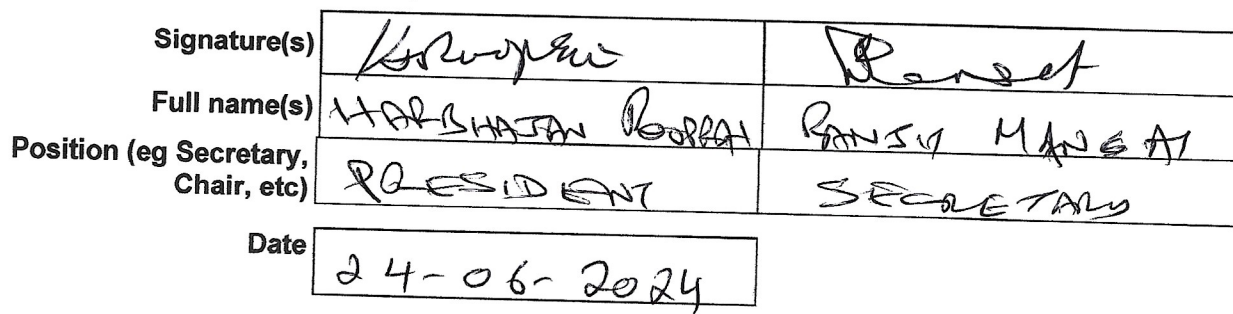 Signature(s)
Full name(s) HARBHAJAN ROOPRAI RANJIT MANGAT
Position (eg Secretary,
Chair, etc) PRESIDENT SECRETARY
Date 24-06-2024